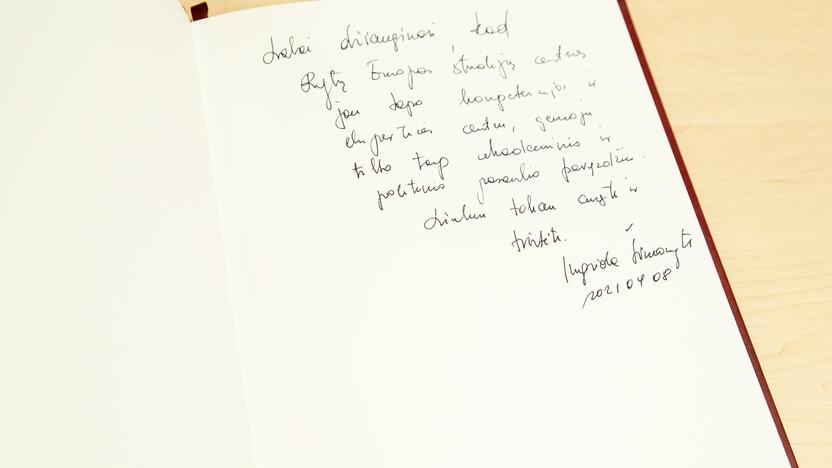 Labai džiaugiuosi, kad
Rytų Europos studijų centras
jau tapo kompetencijų ir
ekspertizės centru, geruoju
tilto tarp akademinio ir
politinio pasaulio pavyzdžiu.
Linkiu tokiam augti ir
tvirtėti.
Ingrida Šimonytė
2021 04 08